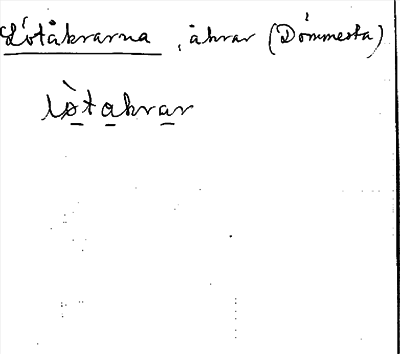 Lótåkrarna, åkrar (Dömmesta)
lò̱ta̱kra̱r